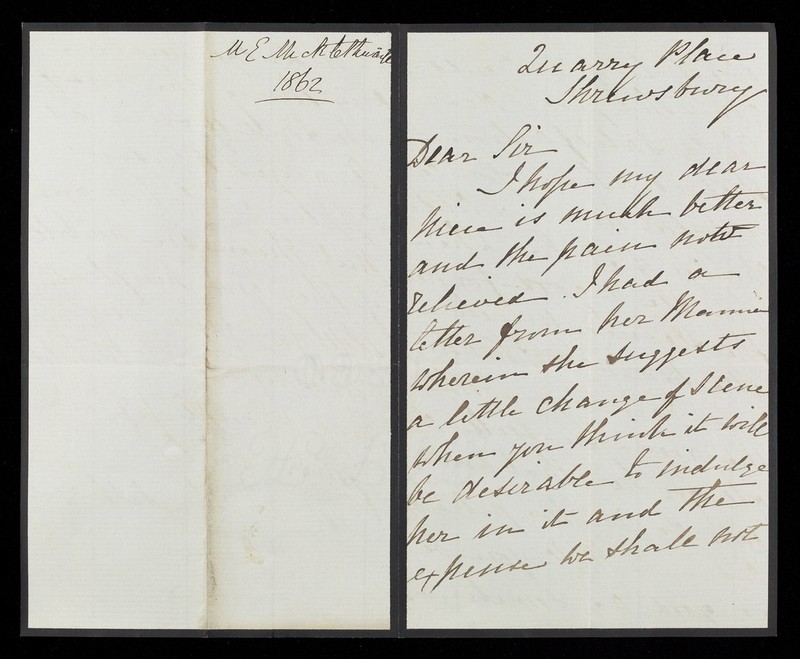 M E Micklethwaite
1862
Quarry Place
Shrewsbury
Dear Sir
I hope my dear
Niece is much better
and the pain now
relieved. I had a
letter from her Mamma
wherein she suggests
a little change of Scene
when you think it will
be desirable to indulge
her in it and the
expense we shall not